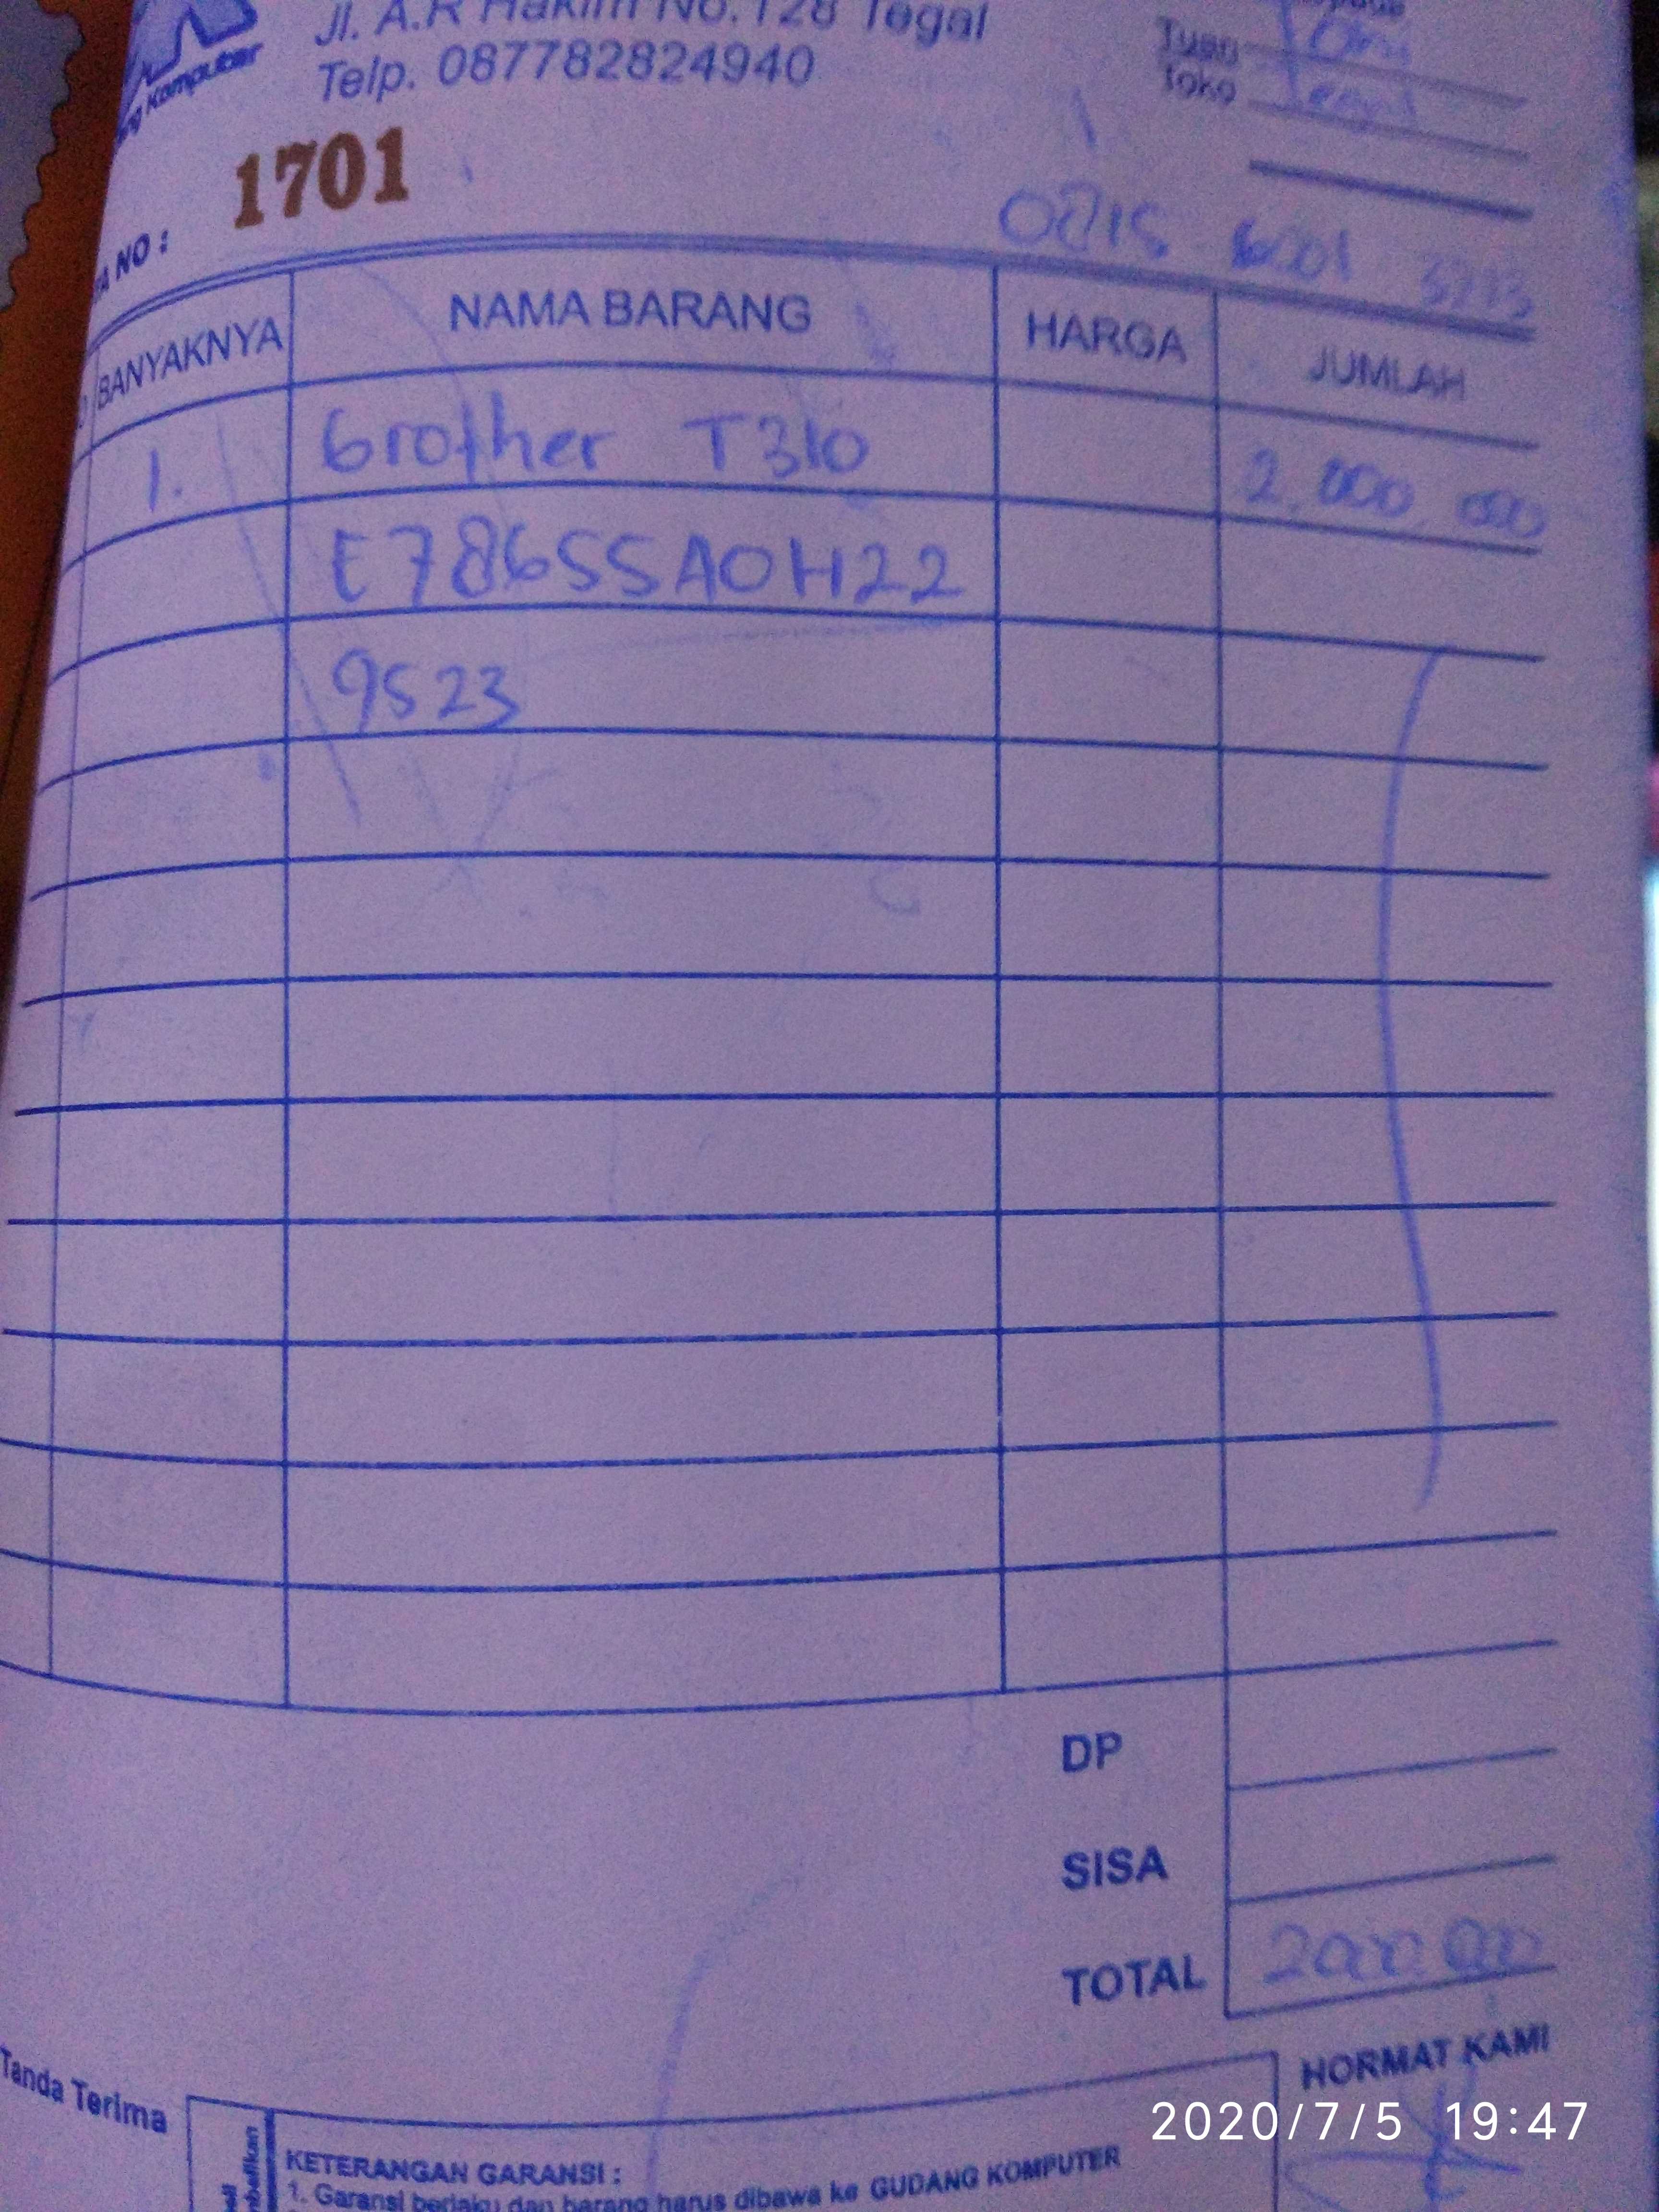 Jl. A.R Hakim No. 128 Tegal
Telp. 087782824940
Komputer
Tuan
Toko
NO : 1701
0815
BANYAKNYA NAMA BARANG HARGA JUMLAH
1. brother T310 2.000.000
E78655A0H22
9523
DP
SISA
TOTAL 2000.000
Tanda Terima
HORMAT KAMI
KETERANGAN GARANSI :
1. Garansi berlaku dan barang harus dibawa ke GUDANG KOMPUTER
2020/7/5 19:47